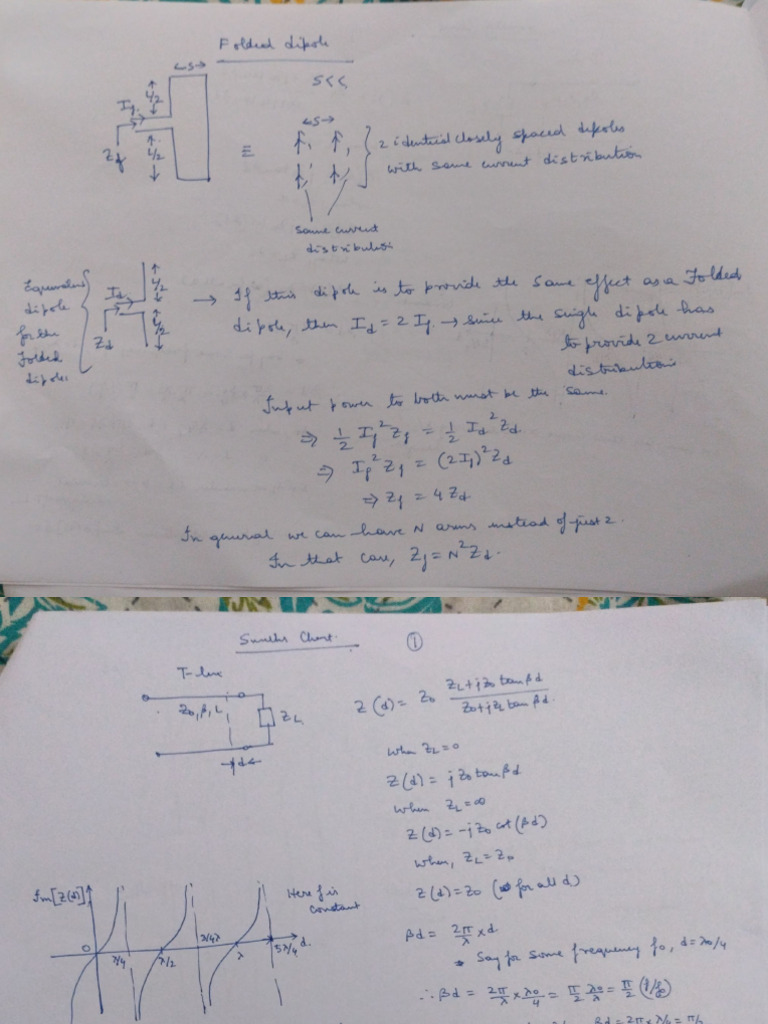 Folded dipole
←S→
S<<
L/2
If
Zf
L/2
≡
←S→
2 identical closely spaced dipoles
with same current distribution
Same current
distribution
Equivalent
dipole
for the
Folded
dipole.
L/2
Id
Zd
L/2
→ If this dipole is to provide the same effect as a Folded
dipole, then Id = 2 If → since the single dipole has
to provide 2 current
distributions
Input power to both must be the same.
⇒ 1/2 If² Zf = 1/2 Id² Zd
⇒ If² Zf = (2If)² Zd
⇒ Zf = 4 Zd
In general we can have N arms instead of just 2.
In that case, Zf = N² Zd.
Smiths Chart. ①
T-line
Z0, β, L
ZL
d
Z(d) = Z0 (ZL + jZ0 tan βd)/(Z0 + jZL tan βd).
When ZL = 0
Z(d) = j Z0 tan βd
When ZL = ∞
Z(d) = -j Z0 cot (βd)
When, ZL = Z0
Z(d) = Z0 (for all d)
Im[Z(d)]
Here f is
constant
0 λ/4 λ/2 3/4λ λ 5λ/4 d.
βd = 2π/λ × d
Say for some frequency f0, d = λ0/4
∴ βd = 2π/λ × λ0/4 = π/2 λ0/λ = π/2 (f/f0)
βd = 2π × λ/4 = π/2